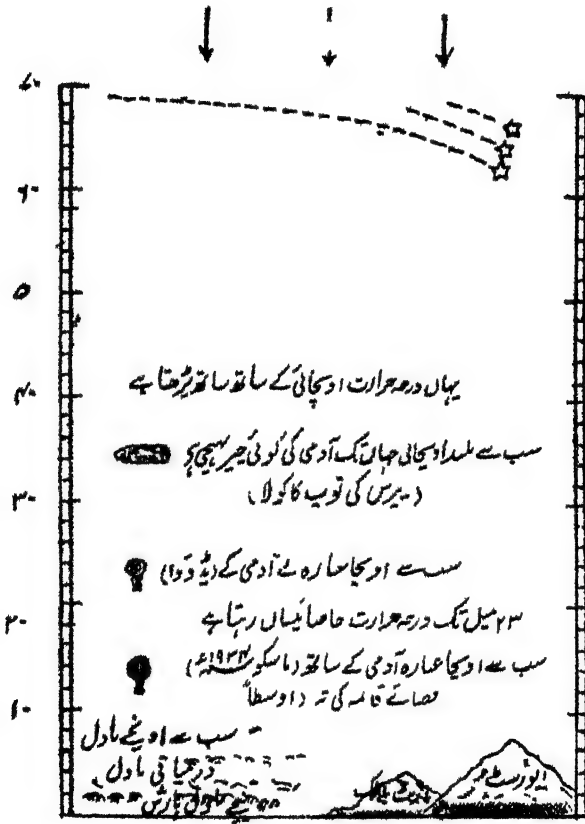 ۷۰
۶۰
۵۰
۴۰
یہاں درجہ حرارت اونچائی کے ساتھ ساتھ بڑھتا ہے
سب سے بلند اونچائی جہاں تک آدمی کی کوئی چیز پہنچی ہے
(پیرس کی توپ کا گولا)
۳۰
سب سے اونچا غبارہ بے آدمی کے (پڈووا)
۲۰
۲۳ میل تک درجہ حرارت خاصا یکساں رہتا ہے
سب سے اونچا غبارہ آدمی کے ساتھ (ماسکو ۱۹۳۴ء)
فضائے قائمہ کی تہ (اوسطاً
۱۰
سب سے اونچے بادل
درمیانی بادل
نیچے بادل بارش
ایورسٹ